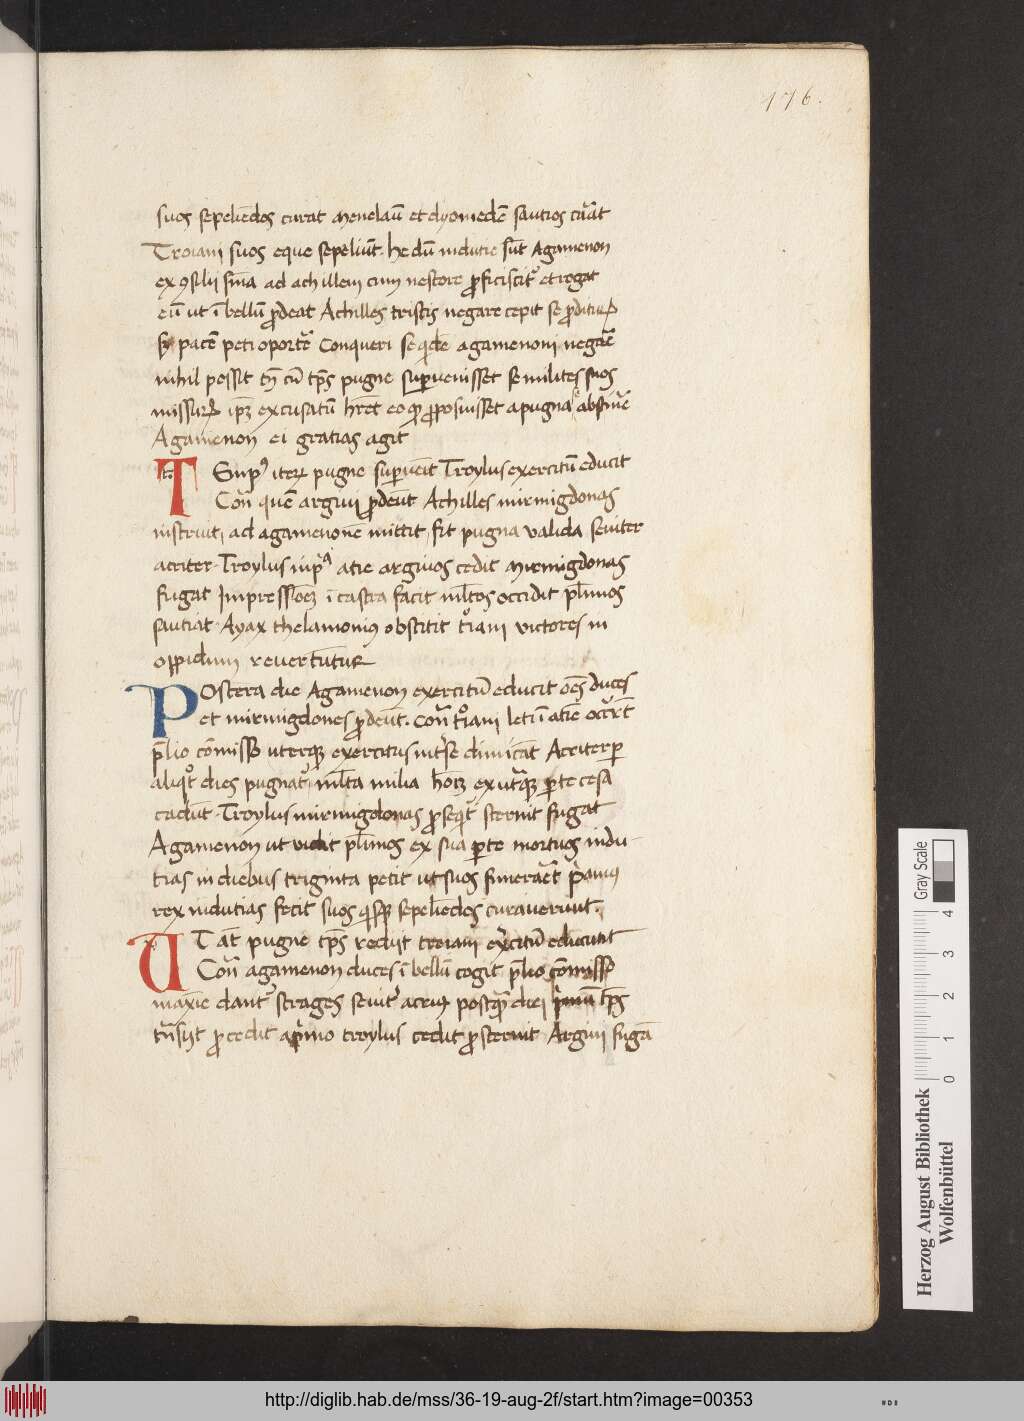 176.
suos sepeliēdos curat Menelaū et dyomedē sautios curāt
Troiani suos eque sepeliūt. he dū indutie sūt Agamenon
ex ꝯsilii sn̄ia ad achillem cum nestore ꝓficiscit᷑ et rogat
eū ut ī bellū ꝓdeat Achilles tristis negare cepit se ꝓditurꝝ
sꝫ pacē peti oportē Conqueri se qͥdē agamenoni negare
nihil possit tn̄ cū tp̄s pugne suꝑuenisset se milites suos
missurꝝ ipꝫ excusatū hr̄et eo qꝫ ꝓposuisset a pugna abstinē
Agamenon ei gratias agit
TEmpꝰ iterꝝ pugne suꝑuēit Troylus exercitū educit
Con̄ quē argiui ꝓdeūt Achilles mirmigdonas
instruit, ad agamenonē mittit, fit pugna valida seuiter
acriter. Troylus in pͥa acie argiuos cedit Mirmigdonas
fugat Impressionē ī castra facit ml̄tos occidit pl̄imos
sautiat. Ayax thelamoniꝰ obstitit troiani victores in
oppidum revertuntur
POstera die Agamenon exercitū educit oēs duces
et mirmigdones ꝓdeūt. Con̄ troiani leti ī aciē occurrūt
p̄lio cōmisso uterqꝫ exercitus int᷑ se dimicāt Acriter ꝑ
aliqͦt dies pugnat᷑, ml̄ta milia hoīꝫ ex utraqꝫ ꝑte cesa
cadūt. Troylus mirmigdonas ꝓseqͥt᷑ sternit fugat
Agamenon ut vidit pl̄imos ex sua ꝑte mortuos indu-
tias in diebus triginta petit ut suos funerarēt pͥamꝰ
rex indutias fecit suos qͥsqꝫ sepeliēdos curaverunt.
UT at̄ pugne tp̄s rediit troiani exercitū educunt
Con̄ agamenon duces ī bellū cogit p̄lio cōmisso
maxīe dant᷑ strages seuit᷑ acriꝰ postqͣ diei pͥmū tp̄s
trāsiit ꝓcedit a pͥmo troylus cedit ꝓsternit Argiui fugā
Herzog August Bibliothek
Wolfenbüttel
Gray Scale
0 1 2 3 4
http://diglib.hab.de/mss/36-19-aug-2f/start.htm?image=00353